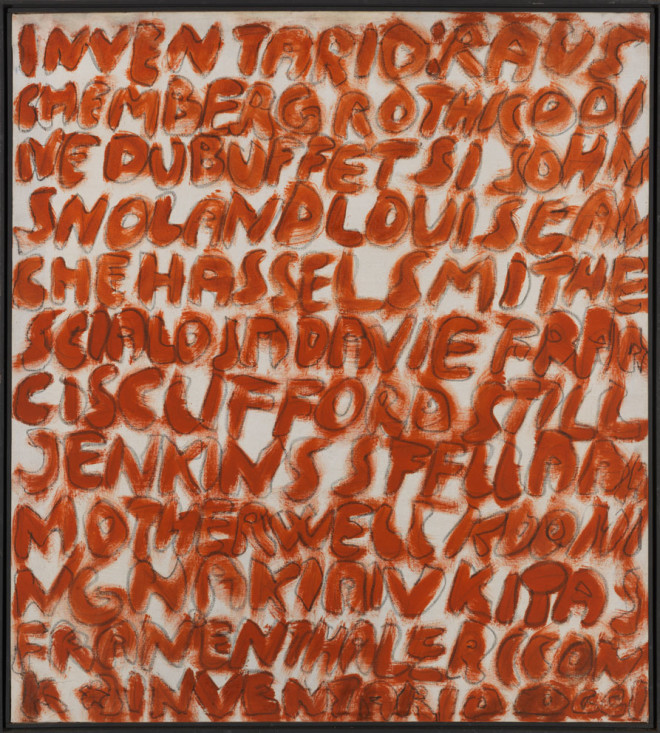 INVENTARIO:RAUS
CHEMBERG ROTHKO DI
NE DUBUFFET SI SOHM
SNOLAND LOUISE AM
CHE HASSEL SMITH E
SCIALOJA DAVIE FRAN
CIS CLIFFORD STILL
JENKINS STELLA
MOTHERWELL KOONI
NG NAKIAN KITAS
FRANENTHALER CCOM
INVENTARIO